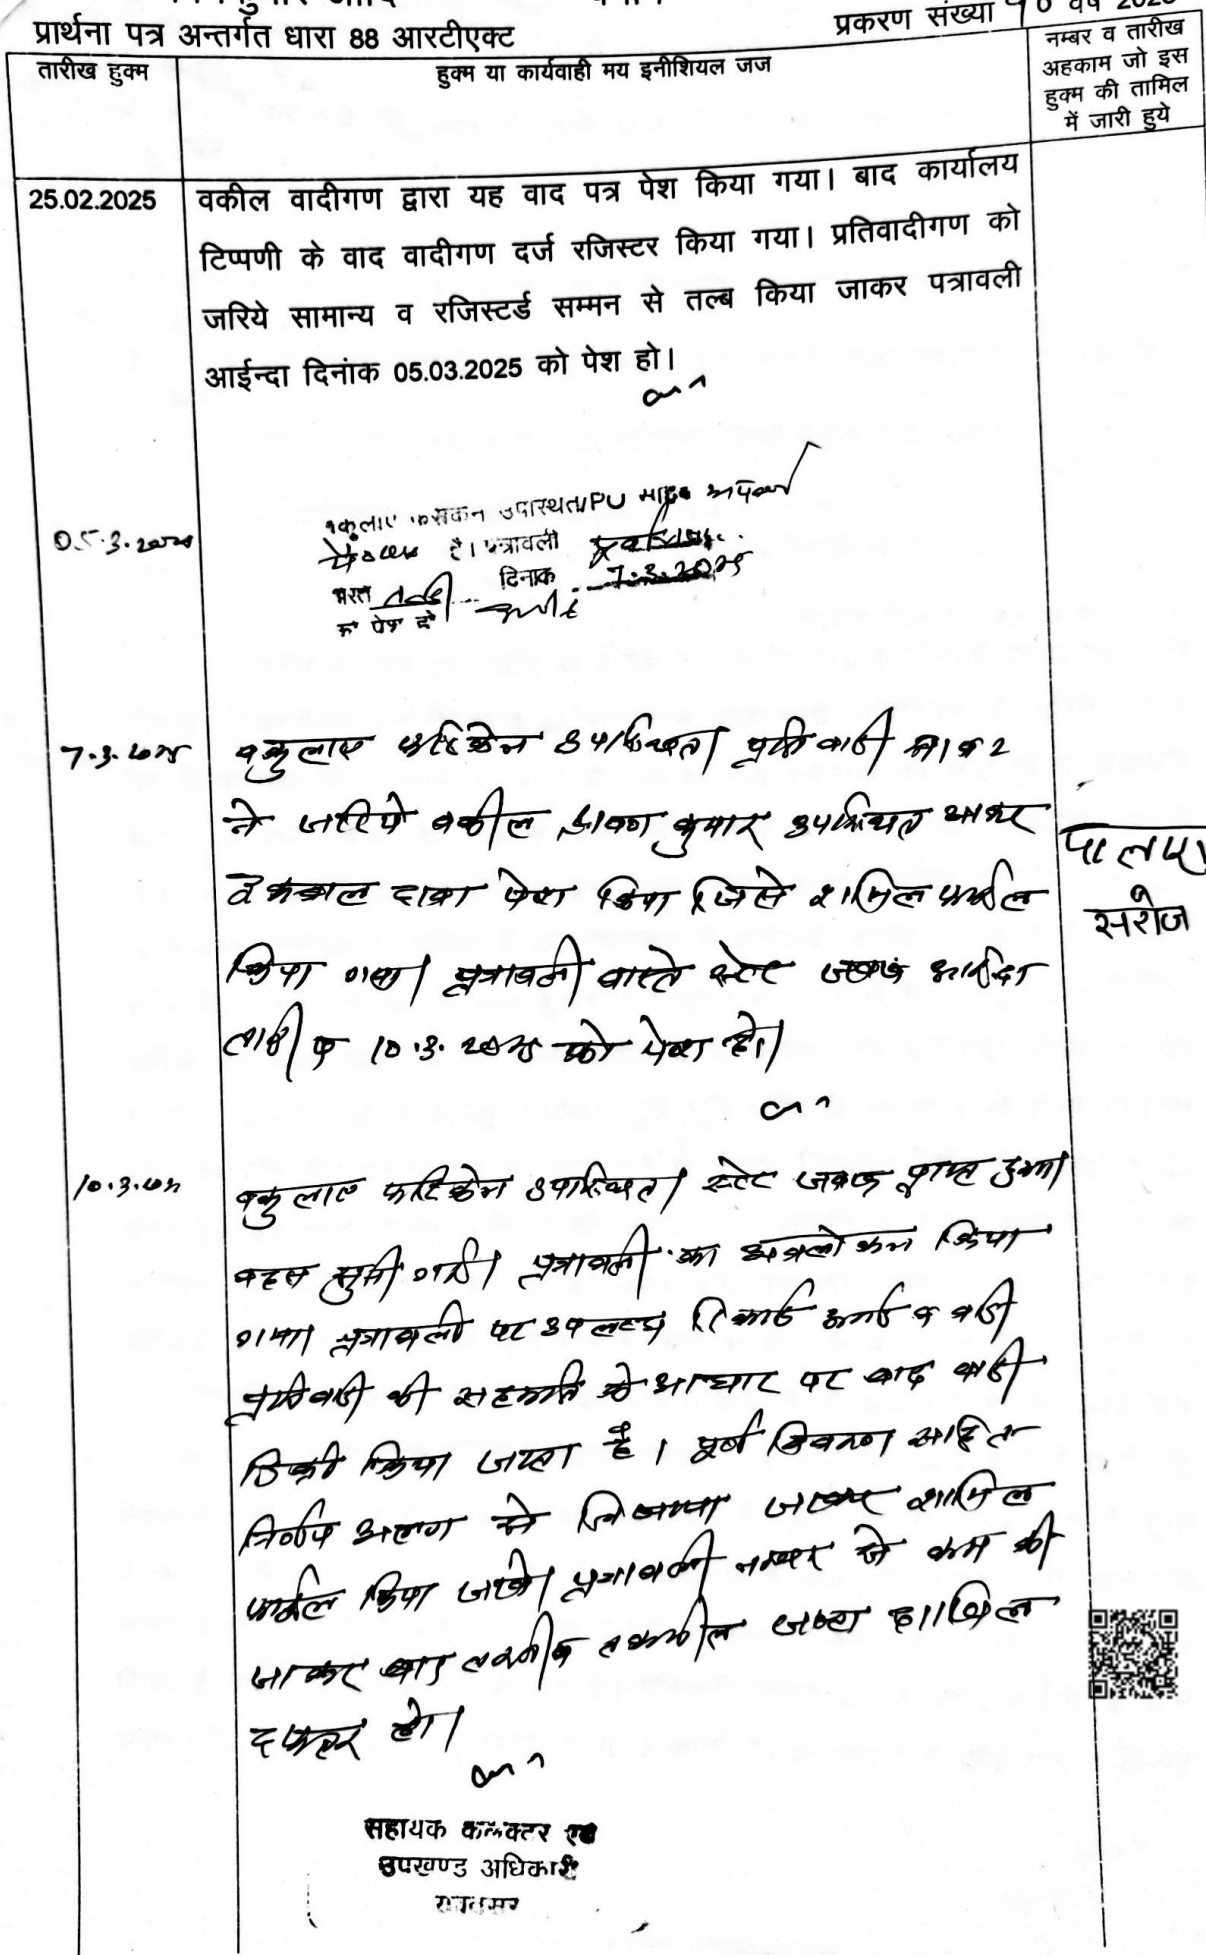 प्रार्थना पत्र अन्तर्गत धारा 88 आरटीएक्ट
प्रकरण संख्या
तारीख हुक्म
हुक्म या कार्यवाही मय इनीशियल जज
नम्बर व तारीख
अहकाम जो इस
हुक्म की तामिल
में जारी हुये
25.02.2025
वकील वादीगण द्वारा यह वाद पत्र पेश किया गया। बाद कार्यालय
टिप्पणी के वाद वादीगण दर्ज रजिस्टर किया गया। प्रतिवादीगण को
जरिये सामान्य व रजिस्टर्ड सम्मन से तल्ब किया जाकर पत्रावली
आईन्दा दिनांक 05.03.2025 को पेश हो।
05.3.2025
वकुलाए उपस्थित। PO साहब
है। पत्रावली
दिनांक 7.3.2025
को पेश हो
7.3.2025
वकुलाए फरिकेन उपस्थित। प्रतिवादी सं 1 व 2
ने जरिये वकील कुमार उपस्थित आकर
दावा पेश किया जिसे शामिल फाईल
किया गया। पत्रावली वास्ते स्टेट जवाब आईन्दा
तारीख 10.3.2025 को पेश हो।
पालना
सरोज
10.3.2025
वकुलाए फरिकेन उपस्थित। स्टेट जवाब प्राप्त हुआ।
बहस सुनी गई। पत्रावली का अवलोकन किया
गया। पत्रावली पर उपलब्ध रिकार्ड व वादी
प्रतिवादी की सहमति के आधार पर वाद वादी
डिक्री किया जाता है। पूर्ण विवरण सहित
निर्णय अलग से लिखाया जाकर शामिल
फाईल किया जावे। पत्रावली नम्बर से कम की
जाकर बाद तकमील जाब्ता दाखिल
दफ्तर हो।
सहायक कलक्टर एवं
उपखण्ड अधिकारी
रावतसर